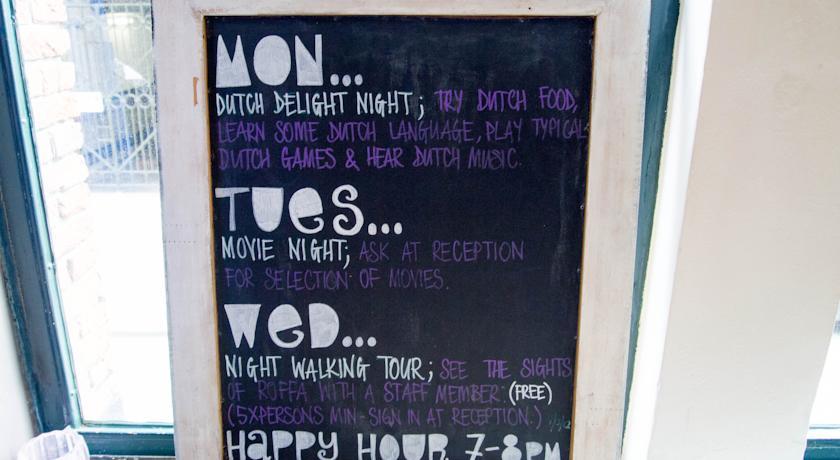 MON...
DUTCH DELIGHT NIGHT; TRY DUTCH FOOD,
LEARN SOME DUTCH LANGUAGE, PLAY TYPICAL
DUTCH GAMES & HEAR DUTCH MUSIC.
TUES...
MOVIE NIGHT; ASK AT RECEPTION
FOR SELECTION OF MOVIES.
WED...
NIGHT WALKING TOUR; SEE THE SIGHTS
OF ROFFA WITH A STAFF MEMBER. (FREE)
(5XPERSONS MIN-SIGN IN AT RECEPTION.)
HAPPY HOUR 7-8PM